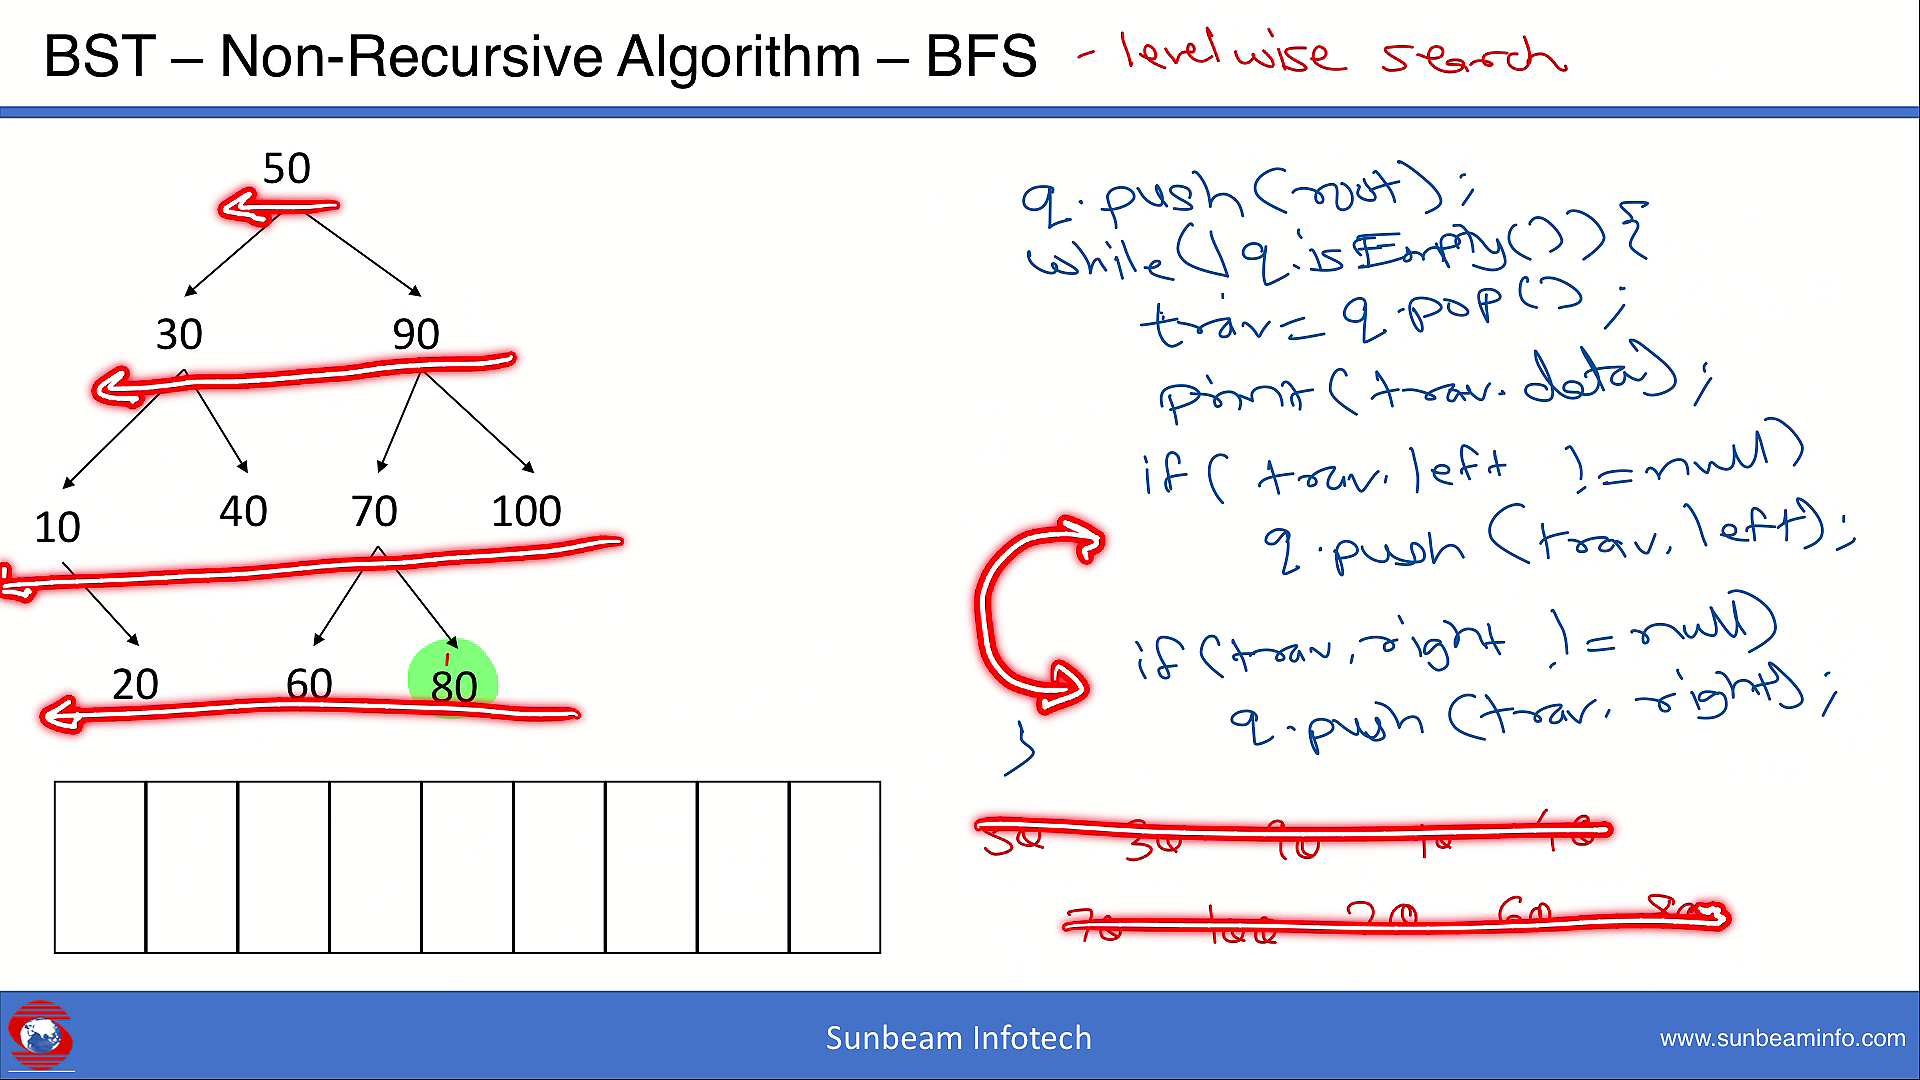 BST – Non-Recursive Algorithm – BFS - levelwise search
50
30 90
10 40 70 100
20 60 80
q.push(root);
while(!q.isEmpty()){
trav= q.pop();
print(trav.data);
if( trav.left !=null)
q.push(trav.left);
if(trav.right !=null)
q.push(trav.right);
}
50 30 90 10 40
70 100 20 60 80
Sunbeam Infotech
www.sunbeaminfo.com